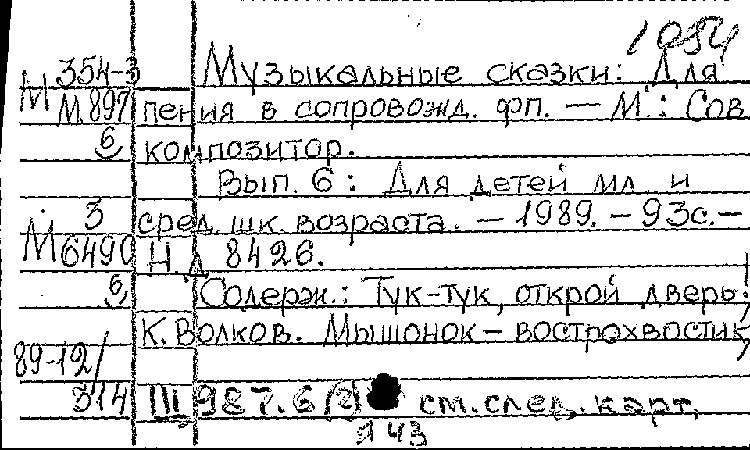 1984
354-3 Музыкальные сказки: Для
М М 897 пения в сопровожд. фп. — М.: Сов
6 композитор.
Вып. 6: Для детей мл. и
3 сред. шк. возраста. — 1989. — 93с.—
М 6490 Н Д 8426.
6 Содерж.: Тук-тук, открой дверь;
К. Волков. Мышонок — вострохвостик;
89-12/
314 Щ 987.6(2) см. след. карт.
Я 43